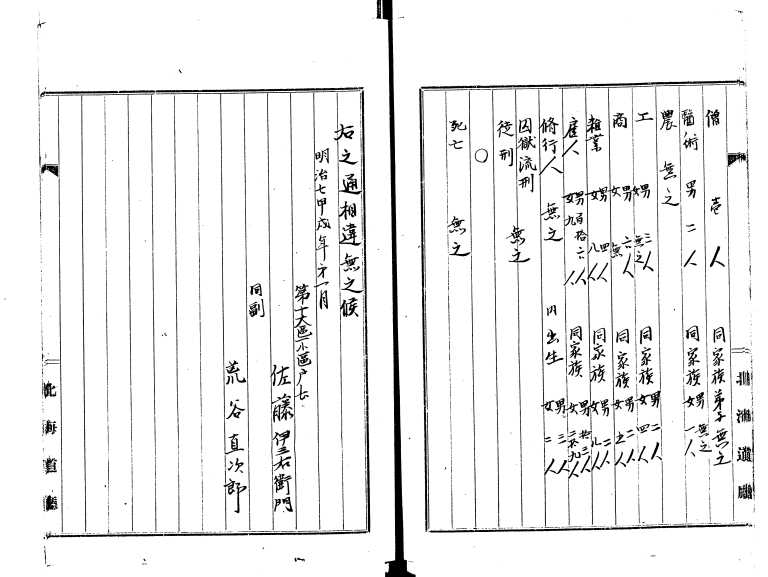 僧 壱人 同家族弟子無之
醫術 男二人 同家族 男無之 女一人
農 無之
工 男三人 女無之 同家族 男二人 女四人
商 男六人 女無 同家族 男二人 女
雑業 男四人 女八人 同家族 男二人 女八人
雇人 男百拾六人 女九人 同家族 男拾三人 女二拾九人
修行人 無之 内出生 男三人 女二人
囚獄流刑
徒刑 無之
○
死亡 無之
北海道廳
右之通相違無之候
明治七甲戌年第一月
第十大區一小區戸長
佐藤伊三右衛門
同副
荒谷直次郎
北海道廳